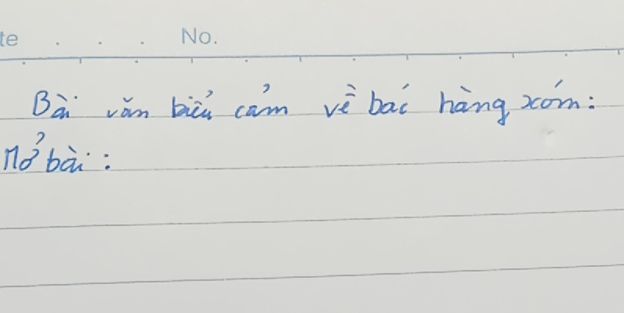 te . . . . No.
Bài văn biểu cảm về bác hàng xóm:
Mở bài: